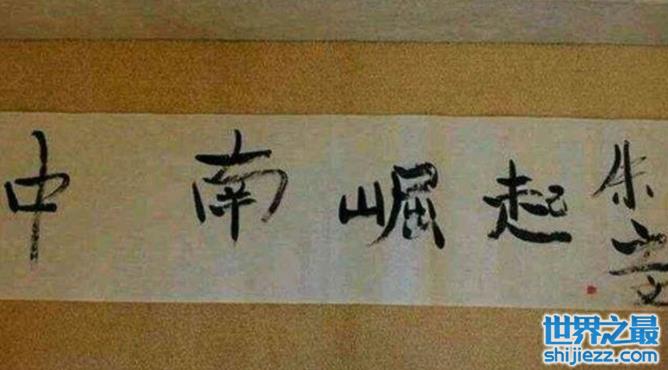 中南崛起
世界之最
shijiezz.com